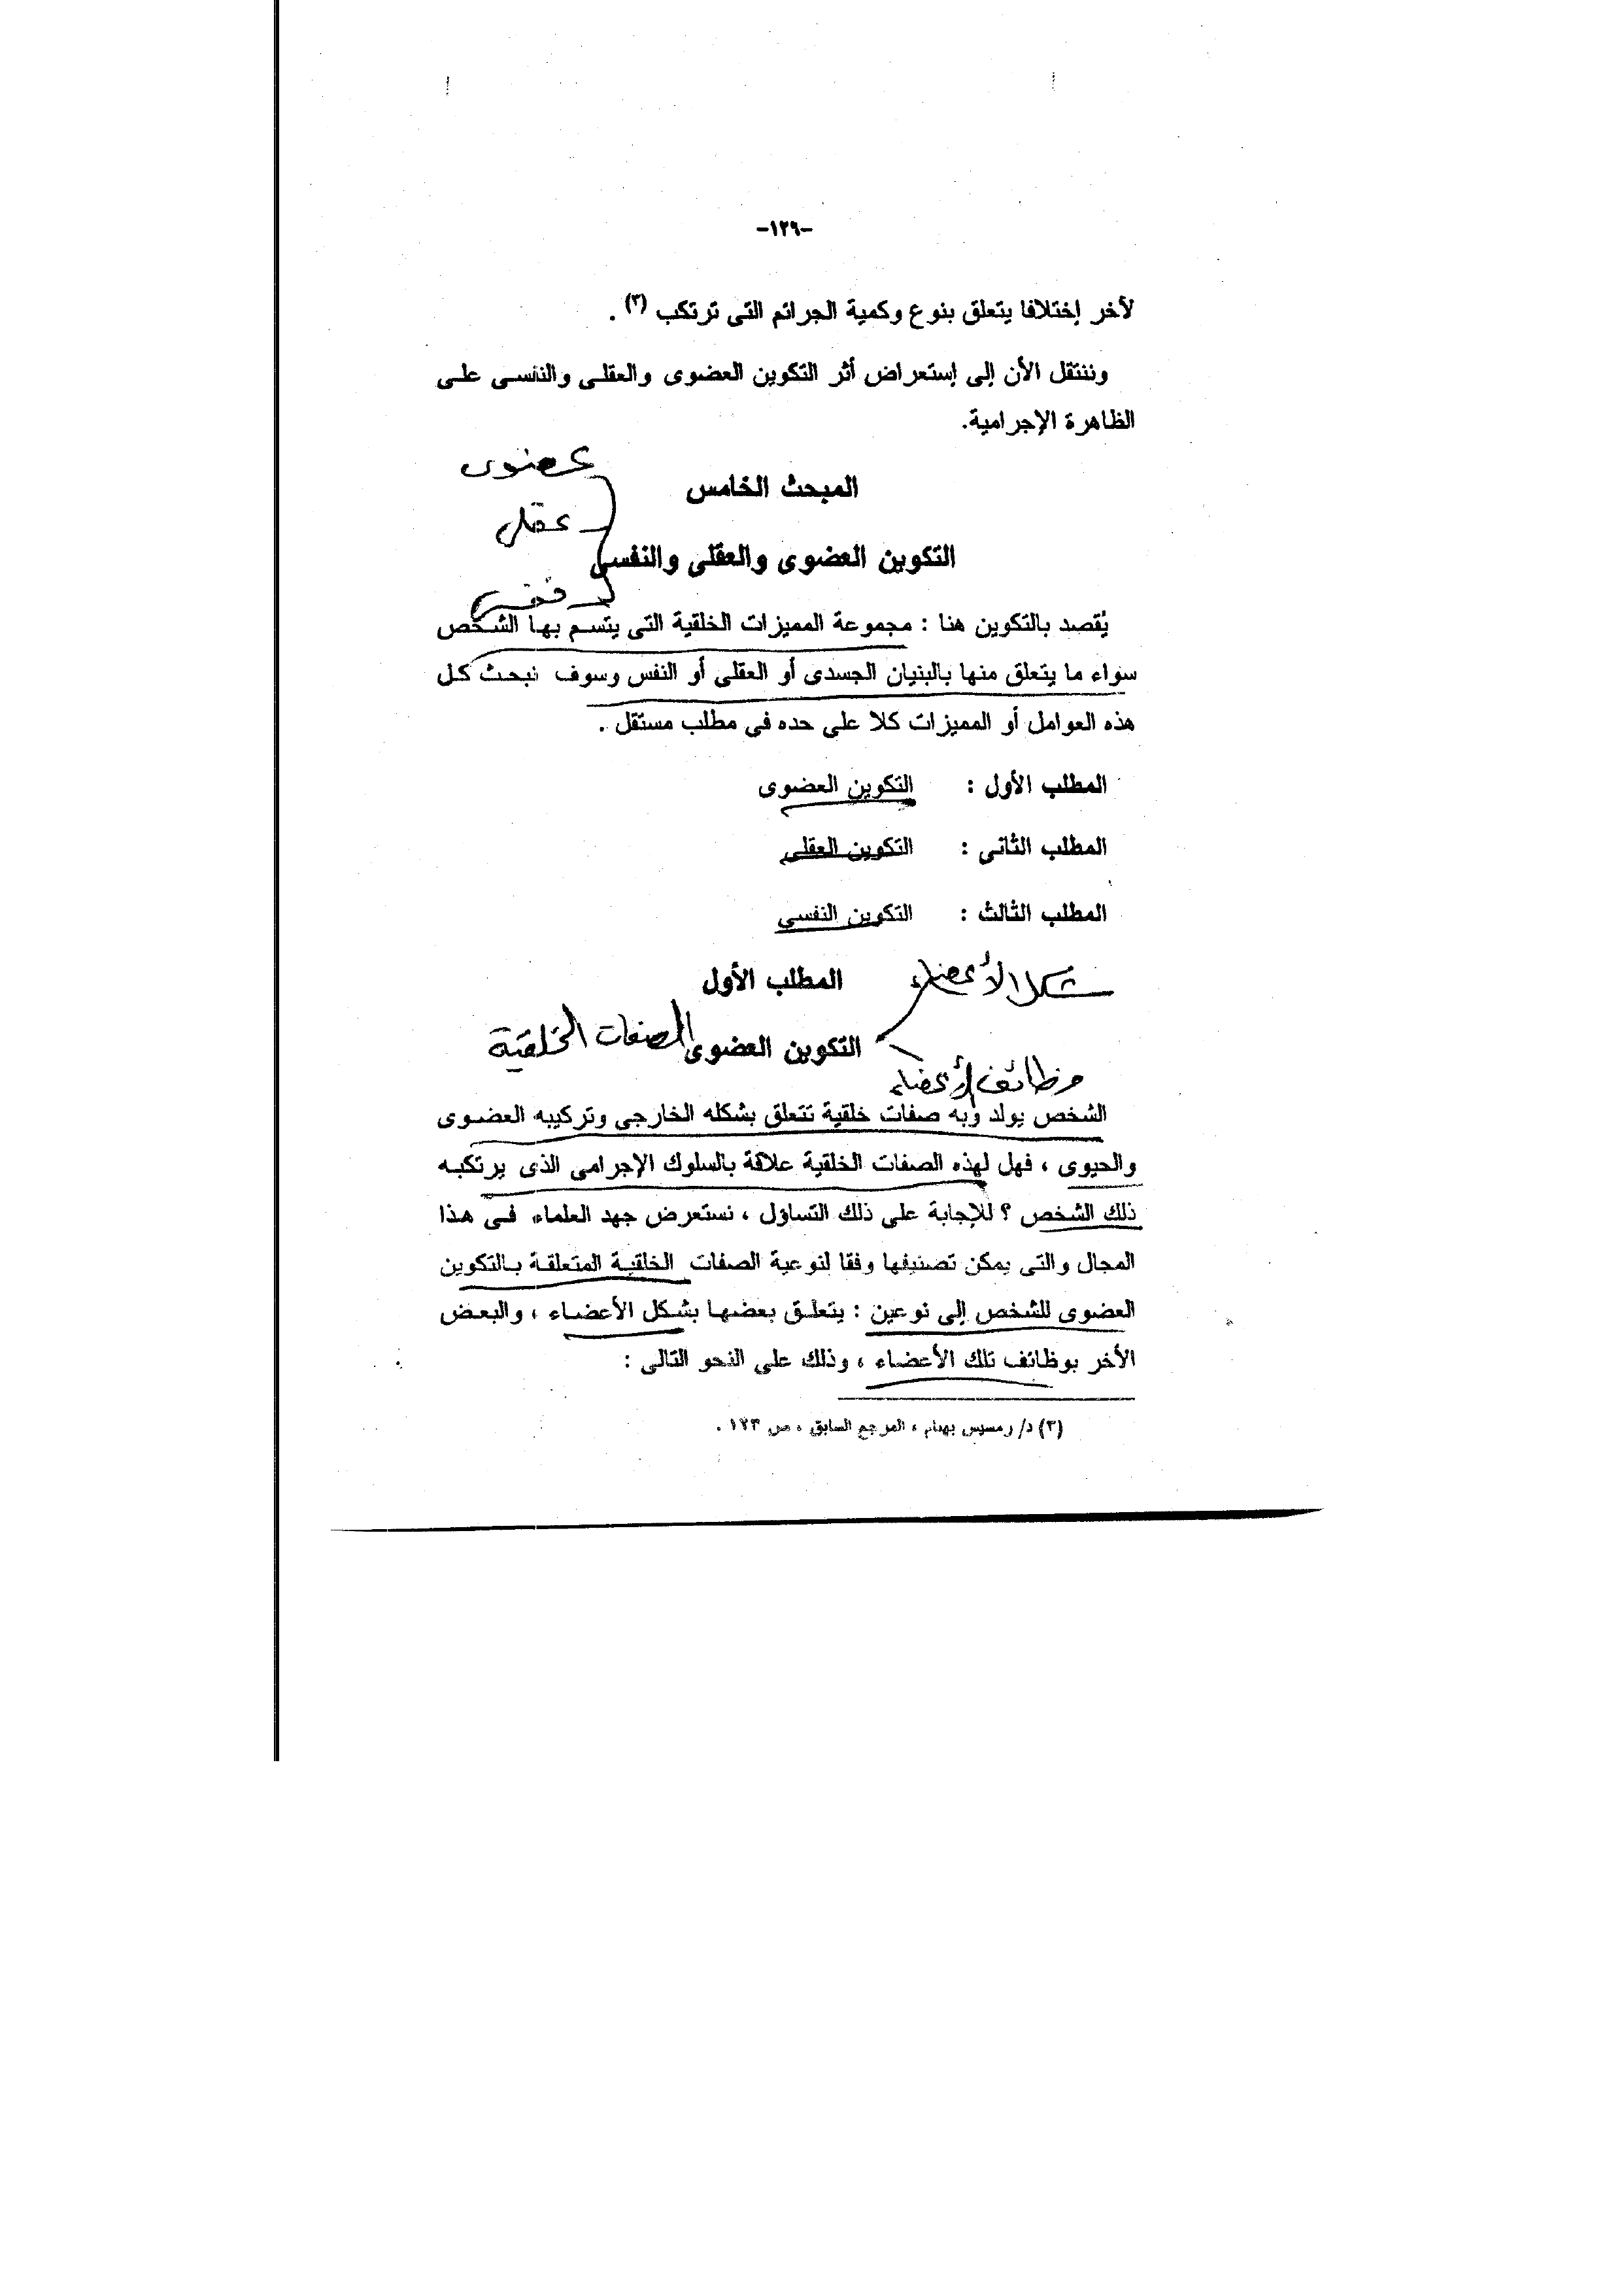 -١٢٩-
لأخر إختلافا يتعلق بنوع وكمية الجرائم التى ترتكب (٣) .
وننتقل الأن إلى إستعراض أثر التكوين العضوى والعقلى والنفسى على
الظاهرة الإجرامية.
عضوى
المبحث الخامس
عقلى
التكوين العضوى والعقلى والنفسى
يُقصد بالتكوين هنا : مجموعة المميزات الخلقية التى يتسم بها الشخص
سواء ما يتعلق منها بالبنيان الجسدى أو العقلى أو النفس وسوف نبحث كل
هذه العوامل أو المميزات كلا على حده فى مطلب مستقل .
المطلب الأول : التكوين العضوى
المطلب الثانى : التكوين العقلى
المطلب الثالث : التكوين النفسى
شكل الأعضاء
المطلب الأول
التكوين العضوى
الصفات الخلقية
وظائف الأعضاء
الشخص يولد وبه صفات خلقية تتعلق بشكله الخارجى وتركيبه العضوى
والحيوى ، فهل لهذه الصفات الخلقية علاقة بالسلوك الإجرامى الذى يرتكبه
ذلك الشخص ؟ للإجابة على ذلك التساؤل ، نستعرض جهد العلماء فى هذا
المجال والتى يمكن تصنيفها وفقا لنوعية الصفات الخلقية المتعلقة بالتكوين
العضوى للشخص إلى نوعين : يتعلق بعضها بشكل الأعضاء ، والبعض
الأخر بوظائف تلك الأعضاء ، وذلك على النحو التالى :
(٣) د/ رمسيس بهنام ، المرجع السابق ، ص ١٢٣ .